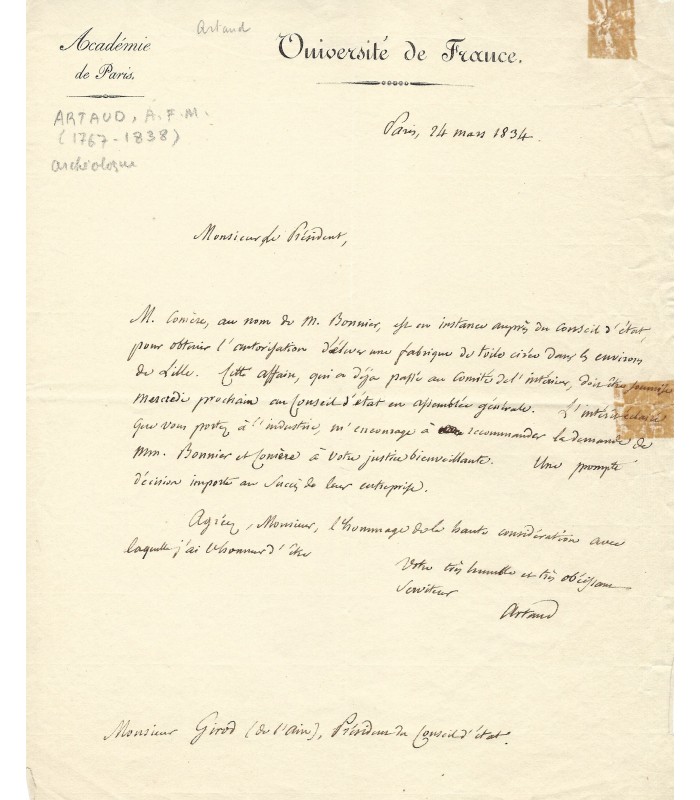 Académie
de Paris.
Artaud
Université de France.
ARTAUD, A.F.M.
(1767-1838)
archéologue
Paris, 24 mars 1834.
Monsieur le Président,
M. Conière, au nom de M. Bonnier, est en instance auprès du Conseil d'état,
pour obtenir l'autorisation d'élever une fabrique de toile cirée dans les environs
de Lille. Cette affaire, qui a déja passée au Comité de l'intérieur, doit être
mercredi prochain au Conseil d'état en assemblée générale. L'intérêt
que vous portez à l'industrie, m'encourage à recommander la demande de
MM. Bonnier et Conière à votre justice bienveillante. Une prompte
décision importe au succès de leur entreprise.
Agréez, Monsieur, l'hommage de la haute considération avec
laquelle j'ai l'honneur d'être
Votre très humble et très obéissant
Serviteur
Artaud
Monsieur Girod (de l'Ain), Président du Conseil d'état.